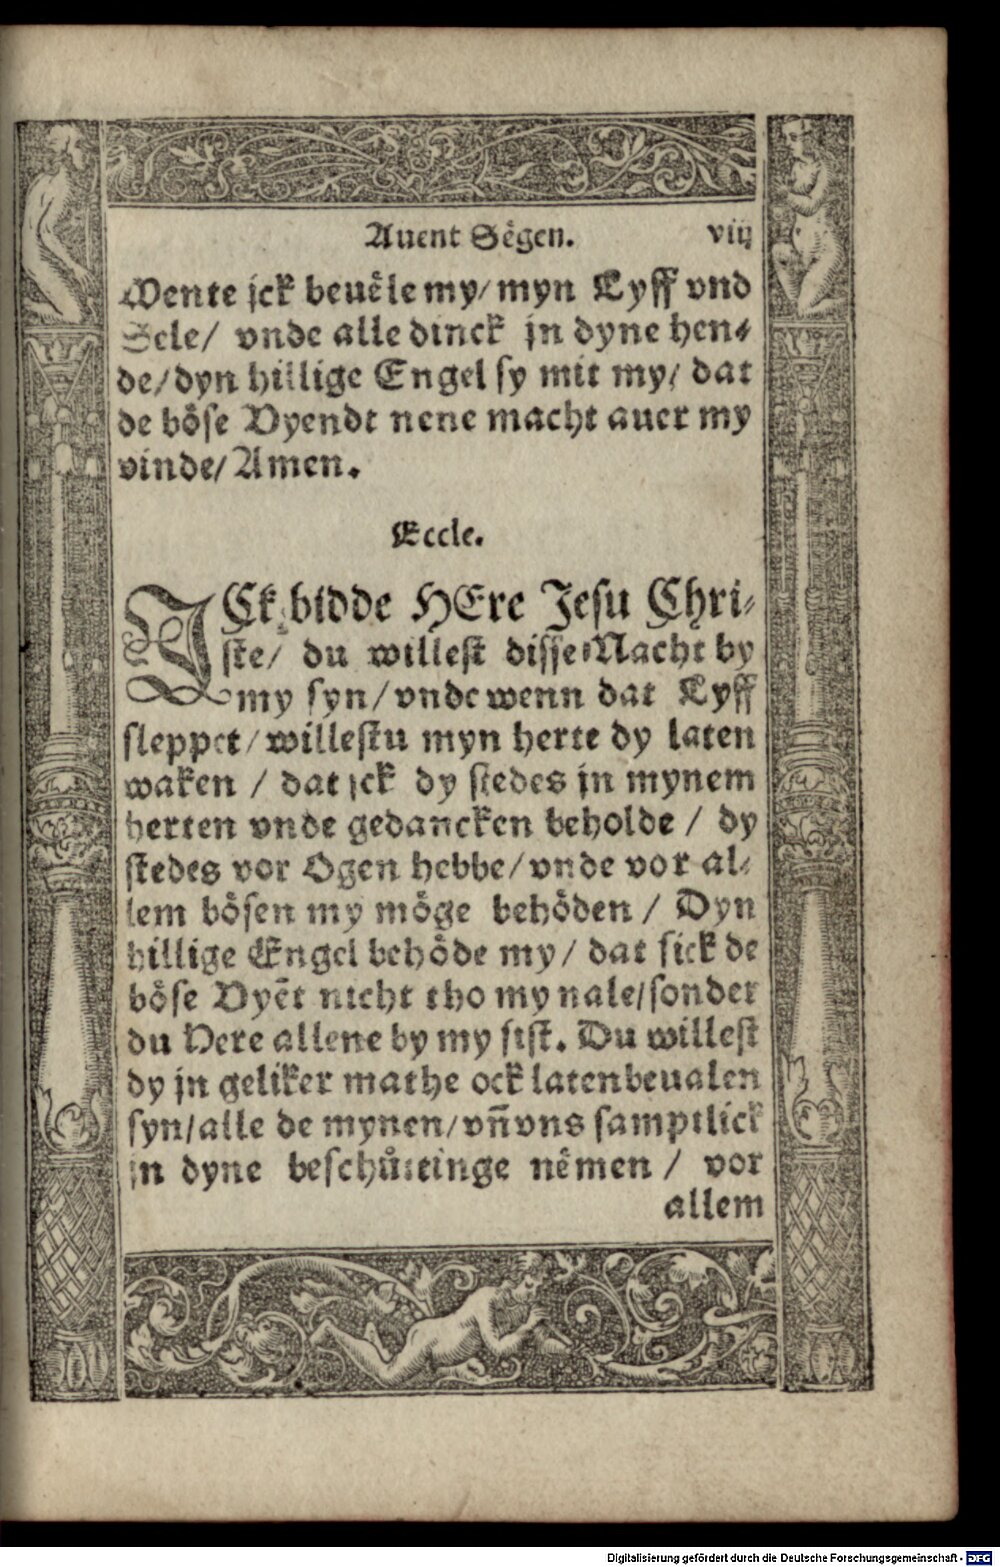 Auent Sēgen. viij
Wente jck beuēle my/ myn Lyff vnd
Sele/ vnde alle dinck jn dyne hen⸗
de/ dyn hillige Engel sy mit my/ dat
de bȫse Vyendt nene macht auer my
vinde/ Amen.
Eccle.
JCk bidde HEre Jesu Chri⸗
ste/ du willest disse Nacht by
my syn/ vnde wenn dat Lyff
sleppet/ willestu myn herte dy laten
waken / dat jck dy stedes jn mynem
herten vnde gedancken beholde / dy
stedes vor Ogen hebbe/ vnde vor al⸗
lem bȫsen my mȫge behȫden / Dyn
hillige Engel behȫde my/ dat sick de
bȫse Vyēt nicht tho my nale/ sonder
du Here allene by my sist. Du willest
dy jn geliker mathe ock laten beualen
syn/ alle de mynen/ vñ vns samptlick
jn dyne beschůttinge nēmen / vor
allem
Digitalisierung gefördert durch die Deutsche Forschungsgemeinschaft - DFG